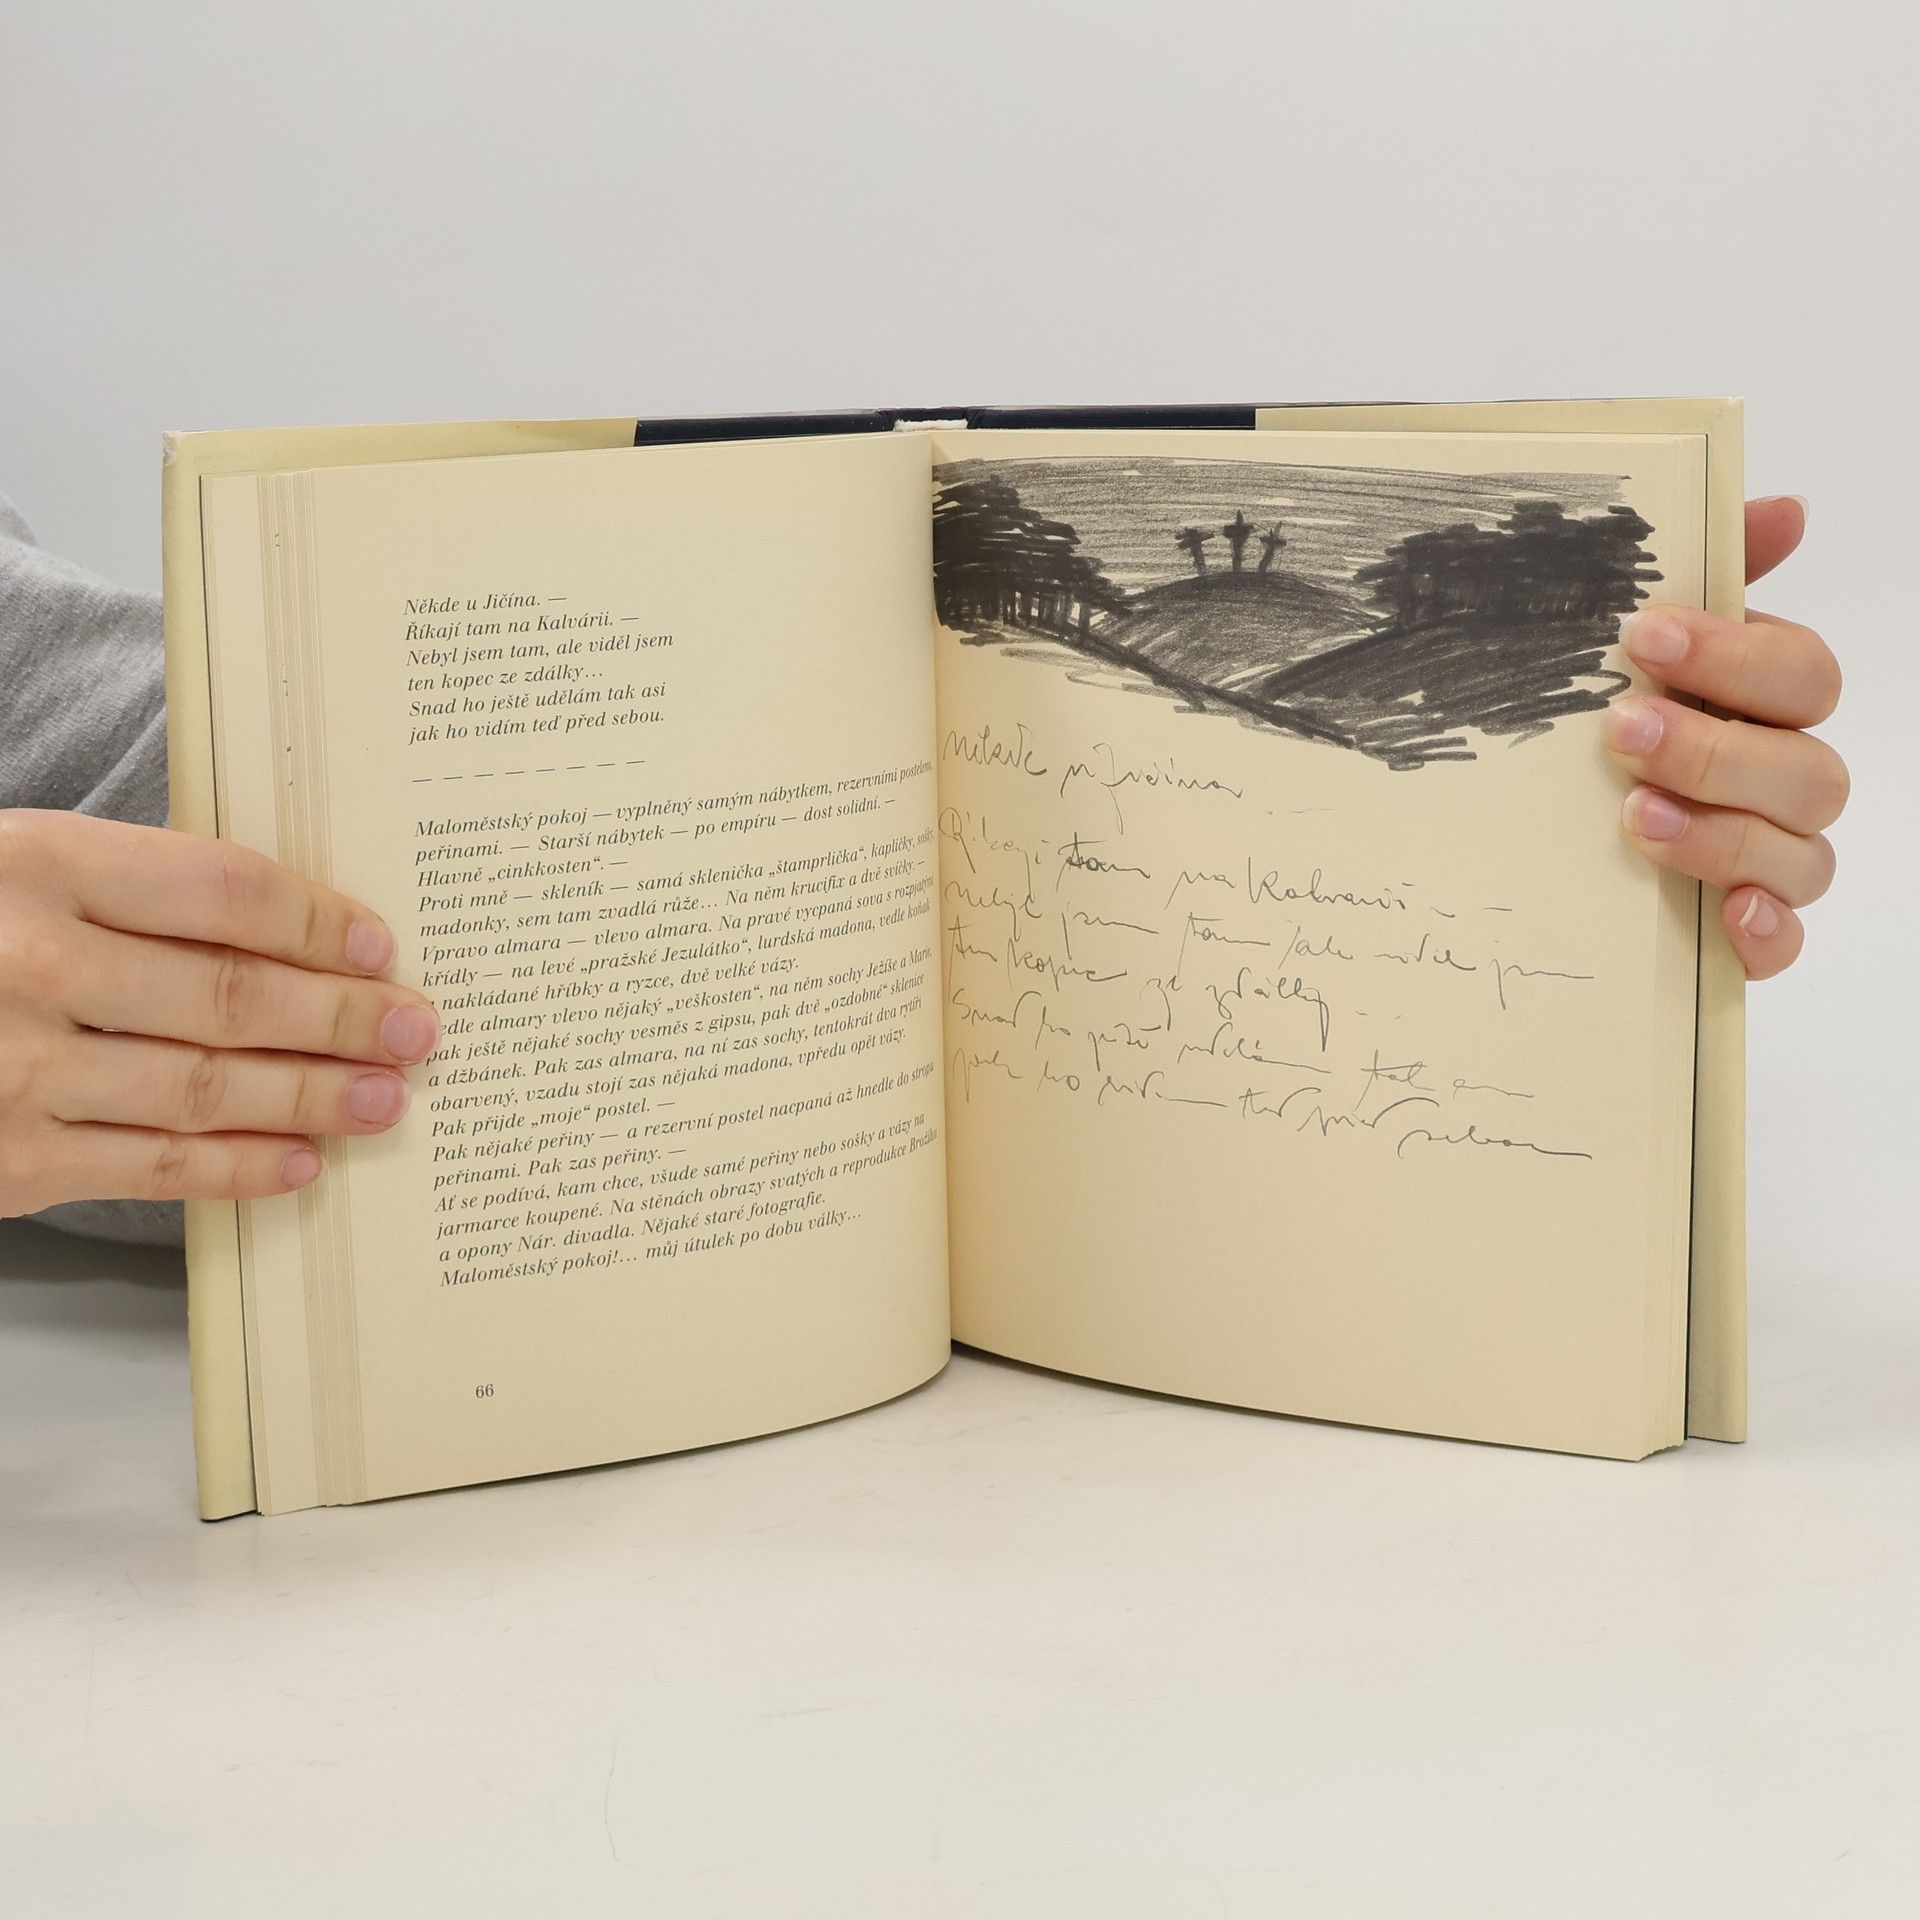 Někde u Jičína. —
Říkají tam na Kalvárii. —
Nebyl jsem tam, ale viděl jsem
ten kopec ze zdálky…
Snad ho ještě udělám tak asi
jak ho vidím teď před sebou.
— — — — — — — —
Maloměstský pokoj — vyplněný samým nábytkem, rezervními postelemi,
peřinami. — Starší nábytek — po empíru — dost solidní. —
Hlavně „cinkkosten“. —
Proti mně — skleník — samá sklenička „štamprlička“, kapličky, sošky
madonky, sem tam zvadlá růže… Na něm krucifix a dvě svíčky. —
Vpravo almara — vlevo almara. Na pravé vycpaná sova s rozpjatými
křídly — na levé „pražské Jezulátko“, lurdská madona, vedle koňak
nakládané hříbky a ryzce, dvě velké vázy.
edle almary vlevo nějaký „veškosten“, na něm sochy Ježíše a Marie,
pak ještě nějaké sochy vesměs z gipsu, pak dvě „ozdobné“ sklenice
a džbánek. Pak zas almara, na ní zas sochy, tentokrát dva rytíři
obarvený, vzadu stojí zas nějaká madona, vpředu opět vázy.
Pak přijde „moje“ postel. —
Pak nějaké peřiny — a rezervní postel nacpaná až hnedle do stropu
peřinami. Pak zas peřiny. —
Ať se podívá, kam chce, všude samé peřiny nebo sošky a vázy na
jarmarce koupené. Na stěnách obrazy svatých a reprodukce Brožíka
a opony Nár. divadla. Nějaké staré fotografie.
Maloměstský pokoj!… můj útulek po dobu války…
66
Někde u Jičína — —
Říkají tam na Kalvarii — —
Nebyl jsem tam, ale viděl jsem
ten kopec ze zdálky - -
Snad ho ještě udělám tak asi
jak ho vidím teď před sebou